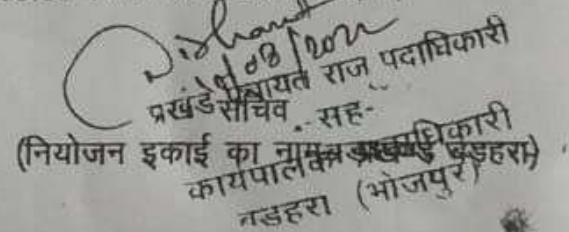 08/2022
प्रखंड पंचायत राज पदाधिकारी
सचिव -सह-
(नियोजन इकाई का नाम बड़हरा)
कार्यपालक पदाधिकारी
बड़हरा (भोजपुर)